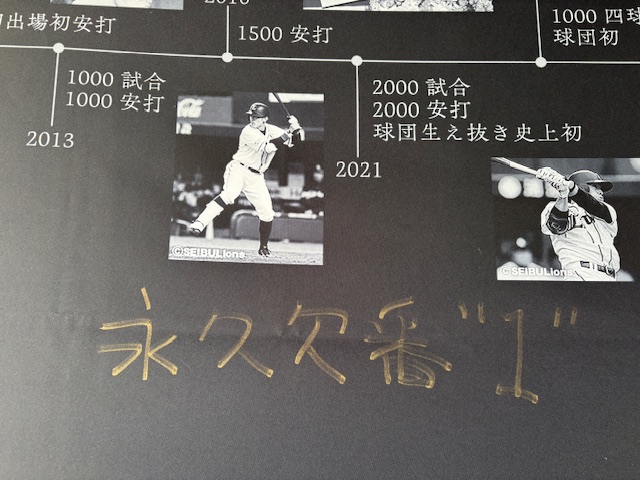 出場初安打
1500 安打
1000 四球
球団初
1000 試合
1000 安打
2013
2000 試合
2000 安打
球団生え抜き史上初
2021
©SEIBULions
©SEIBULions
永久欠番"1"